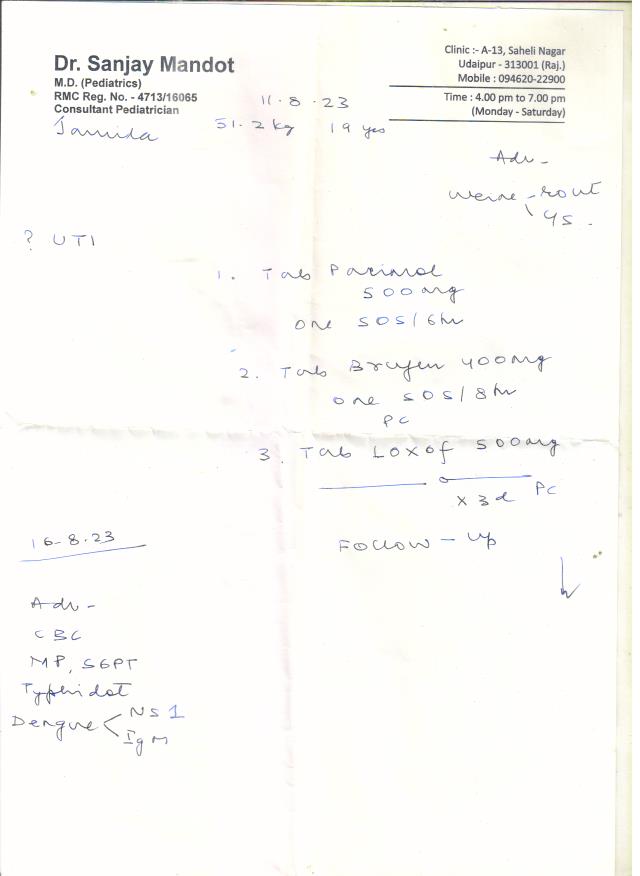 Dr. Sanjay Mandot
M.D. (Pediatrics)
RMC Reg. No. - 4713/16065
Consultant Pediatrician
Clinic :- A-13, Saheli Nagar
Udaipur - 313001 (Raj.)
Mobile : 094620-22900
Time : 4.00 pm to 7.00 pm
(Monday - Saturday)
11.8.23
51.2 kg 19 yes
Adv -
rout
? UTI
1. Tab Pacimol
500mg
one SOS/6hr
2. Tab Brufen 400mg
one SOS/8hr
PC
3. Tab Loxof 500mg
x 3d PC
Follow-up
16-8-23
Adv -
CBC
MP, SGPT
Typhidot
Dengue < NS1
IgM